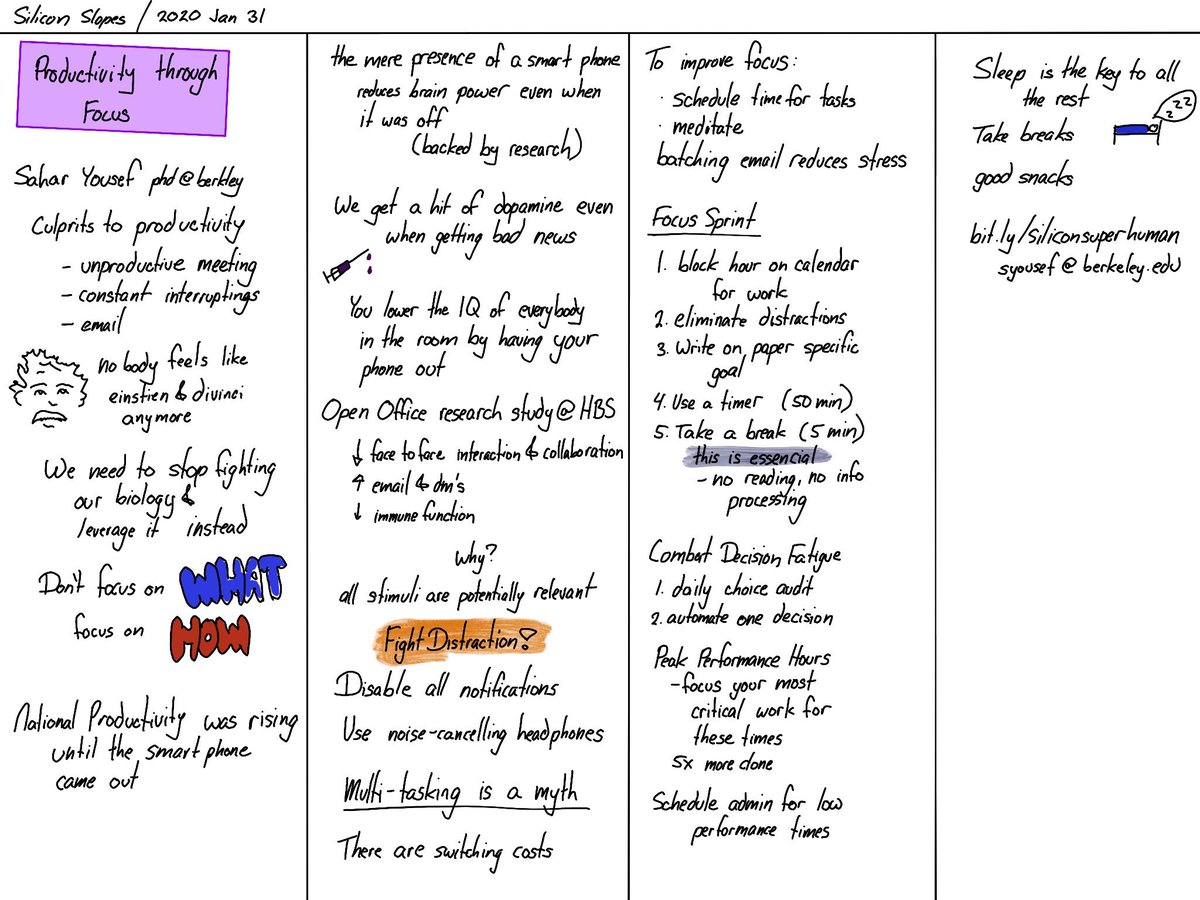 Silicon Slopes / 2020 Jan 31
Productivity through
Focus
Sahar Yousef phd@berkley
Culprits to productivity
- unproductive meeting
- constant interruptings
- email
no body feels like
einstien & divinci
anymore
We need to stop fighting
our biology &
leverage it instead
Don't focus on WHAT
focus on HOW
National Productivity was rising
until the smart phone
came out
the mere presence of a smart phone
reduces brain power even when
it was off
(backed by research)
We get a hit of dopamine even
when getting bad news
You lower the IQ of everybody
in the room by having your
phone out
Open Office research study@HBS
↓ face to face interaction & collaboration
↑ email & dm's
↓ immune function
Why?
all stimuli are potentially relevant
Fight Distraction!
Disable all notifications
Use noise-cancelling headphones
Multi-tasking is a myth
There are switching costs
To improve focus:
· schedule time for tasks
· meditate
batching email reduces stress
Focus Sprint
1. block hour on calendar
for work
2. eliminate distractions
3. Write on paper specific
goal
4. Use a timer (50 min)
5. Take a break (5 min)
this is essencial
- no reading, no info
processing
Combat Decision Fatigue
1. daily choice audit
2. automate one decision
Peak Performance Hours
- focus your most
critical work for
these times
5x more done
Schedule admin for low
performance times
Sleep is the key to all
the rest
zzz
Take breaks
good snacks
bit.ly/siliconsuperhuman
syousef@berkeley.edu